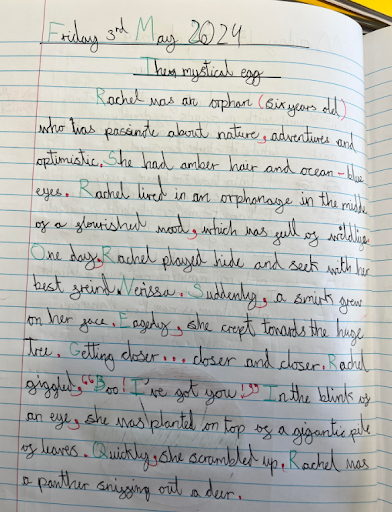 Friday 3rd May 2024
Thes mystical egg
Rachel was an orphan (six years old)
who was passinate about nature, adventures and
optimistic. She had amber hair and ocean-blue
eyes. Rachel lived in an orphanage in the middle
of a flourished wood, which was full of wildlife
One day, Rachel played hide and seek with her
best freind Nerissa. Suddenly, a smirk grew
on her face. Eagerly, she crept towards the huge
tree. Getting closer... closer and closer. Rachel
giggled, "Boo! I've got you!" In the blink of
an eye, she was planted on top of a gigantic pile
of leaves. Quickly, she scrambled up. Rachel was
a panther sniffing out a deer.